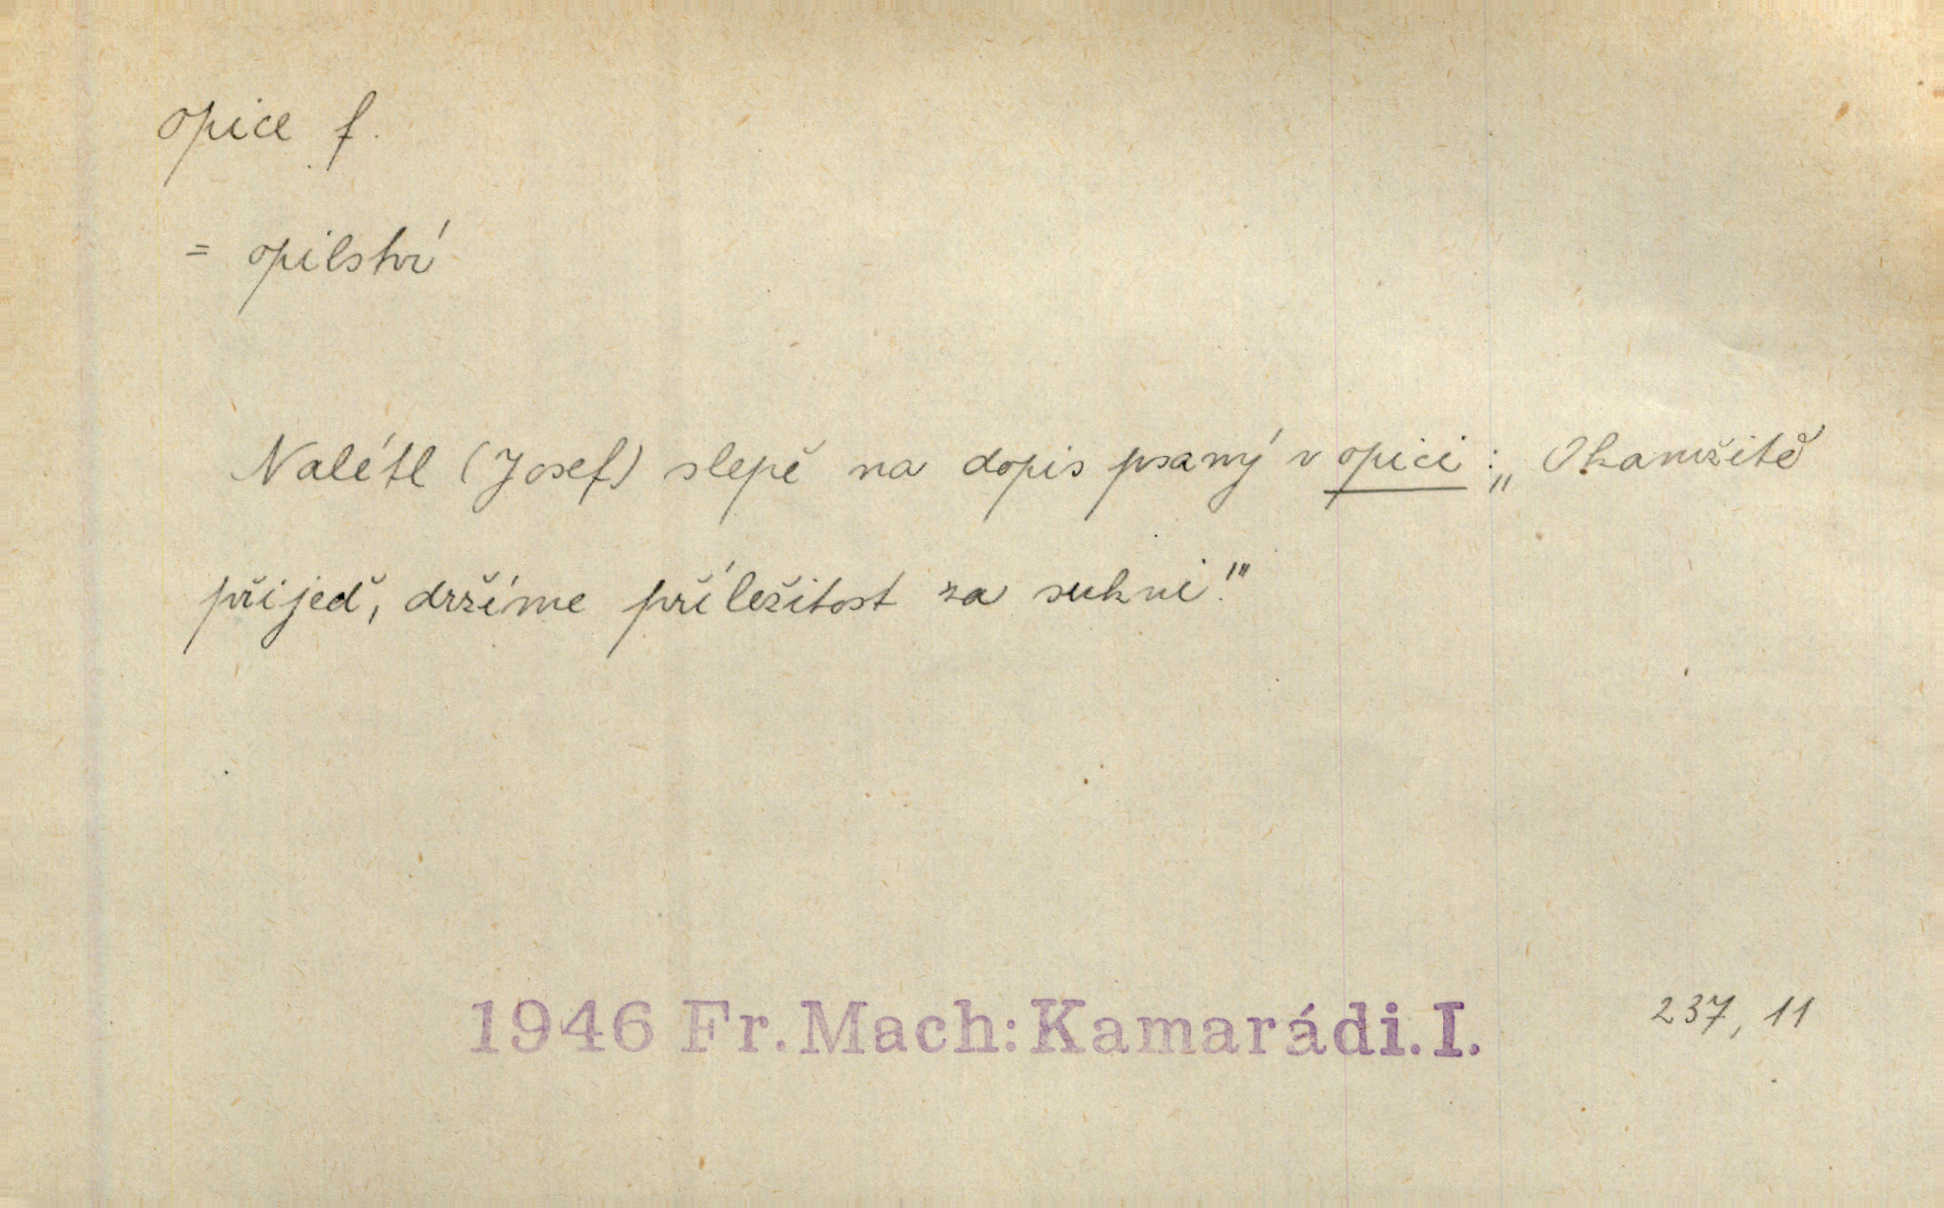 opice f.
= opilství
Nalétl (Josef) slepě na dopis psaný v opici: „Okamžitě
přijeď, držíme příležitost za sukni!"
1946 Fr. Mach: Kamarádi. I.
237, 11